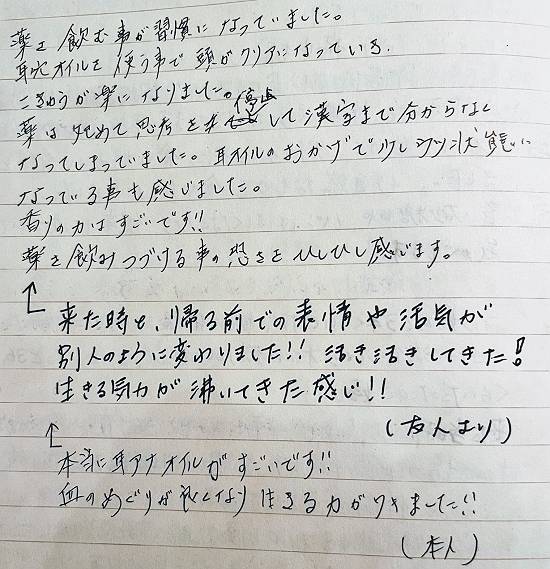 薬を飲む事が習慣になっていました。
耳穴オイルを使う事で頭がクリアになっている.
こきゅうが楽になりました。
薬は 思考を停止して漢字まで分からなく
なってしまっていました。耳オイルのおかげで少し 状態に
なっている事も感じました。
香りの力はすごいです!!
薬を飲みつづける事の恐さをひしひし感じます。
↑
来た時と、帰る前での表情や活気が
別人のように変わりました!! 活き活きしてきた!
生きる気力が沸いてきた感じ!!
(友人より)
↑
本当に耳アナオイルがすごいです!!
血のめぐりが良くなり 生きる力がワキました!!
(本人)